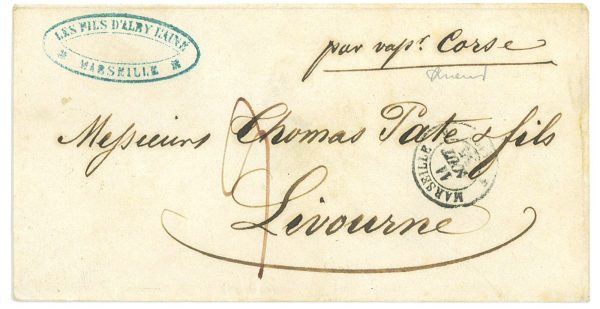 LES FILS D'ALBY L'AINÉ
MARSEILLE
par vapr. Corse
Messieurs Thomas Pate & fils
MARSEILLE
14
AOUT
Livourne